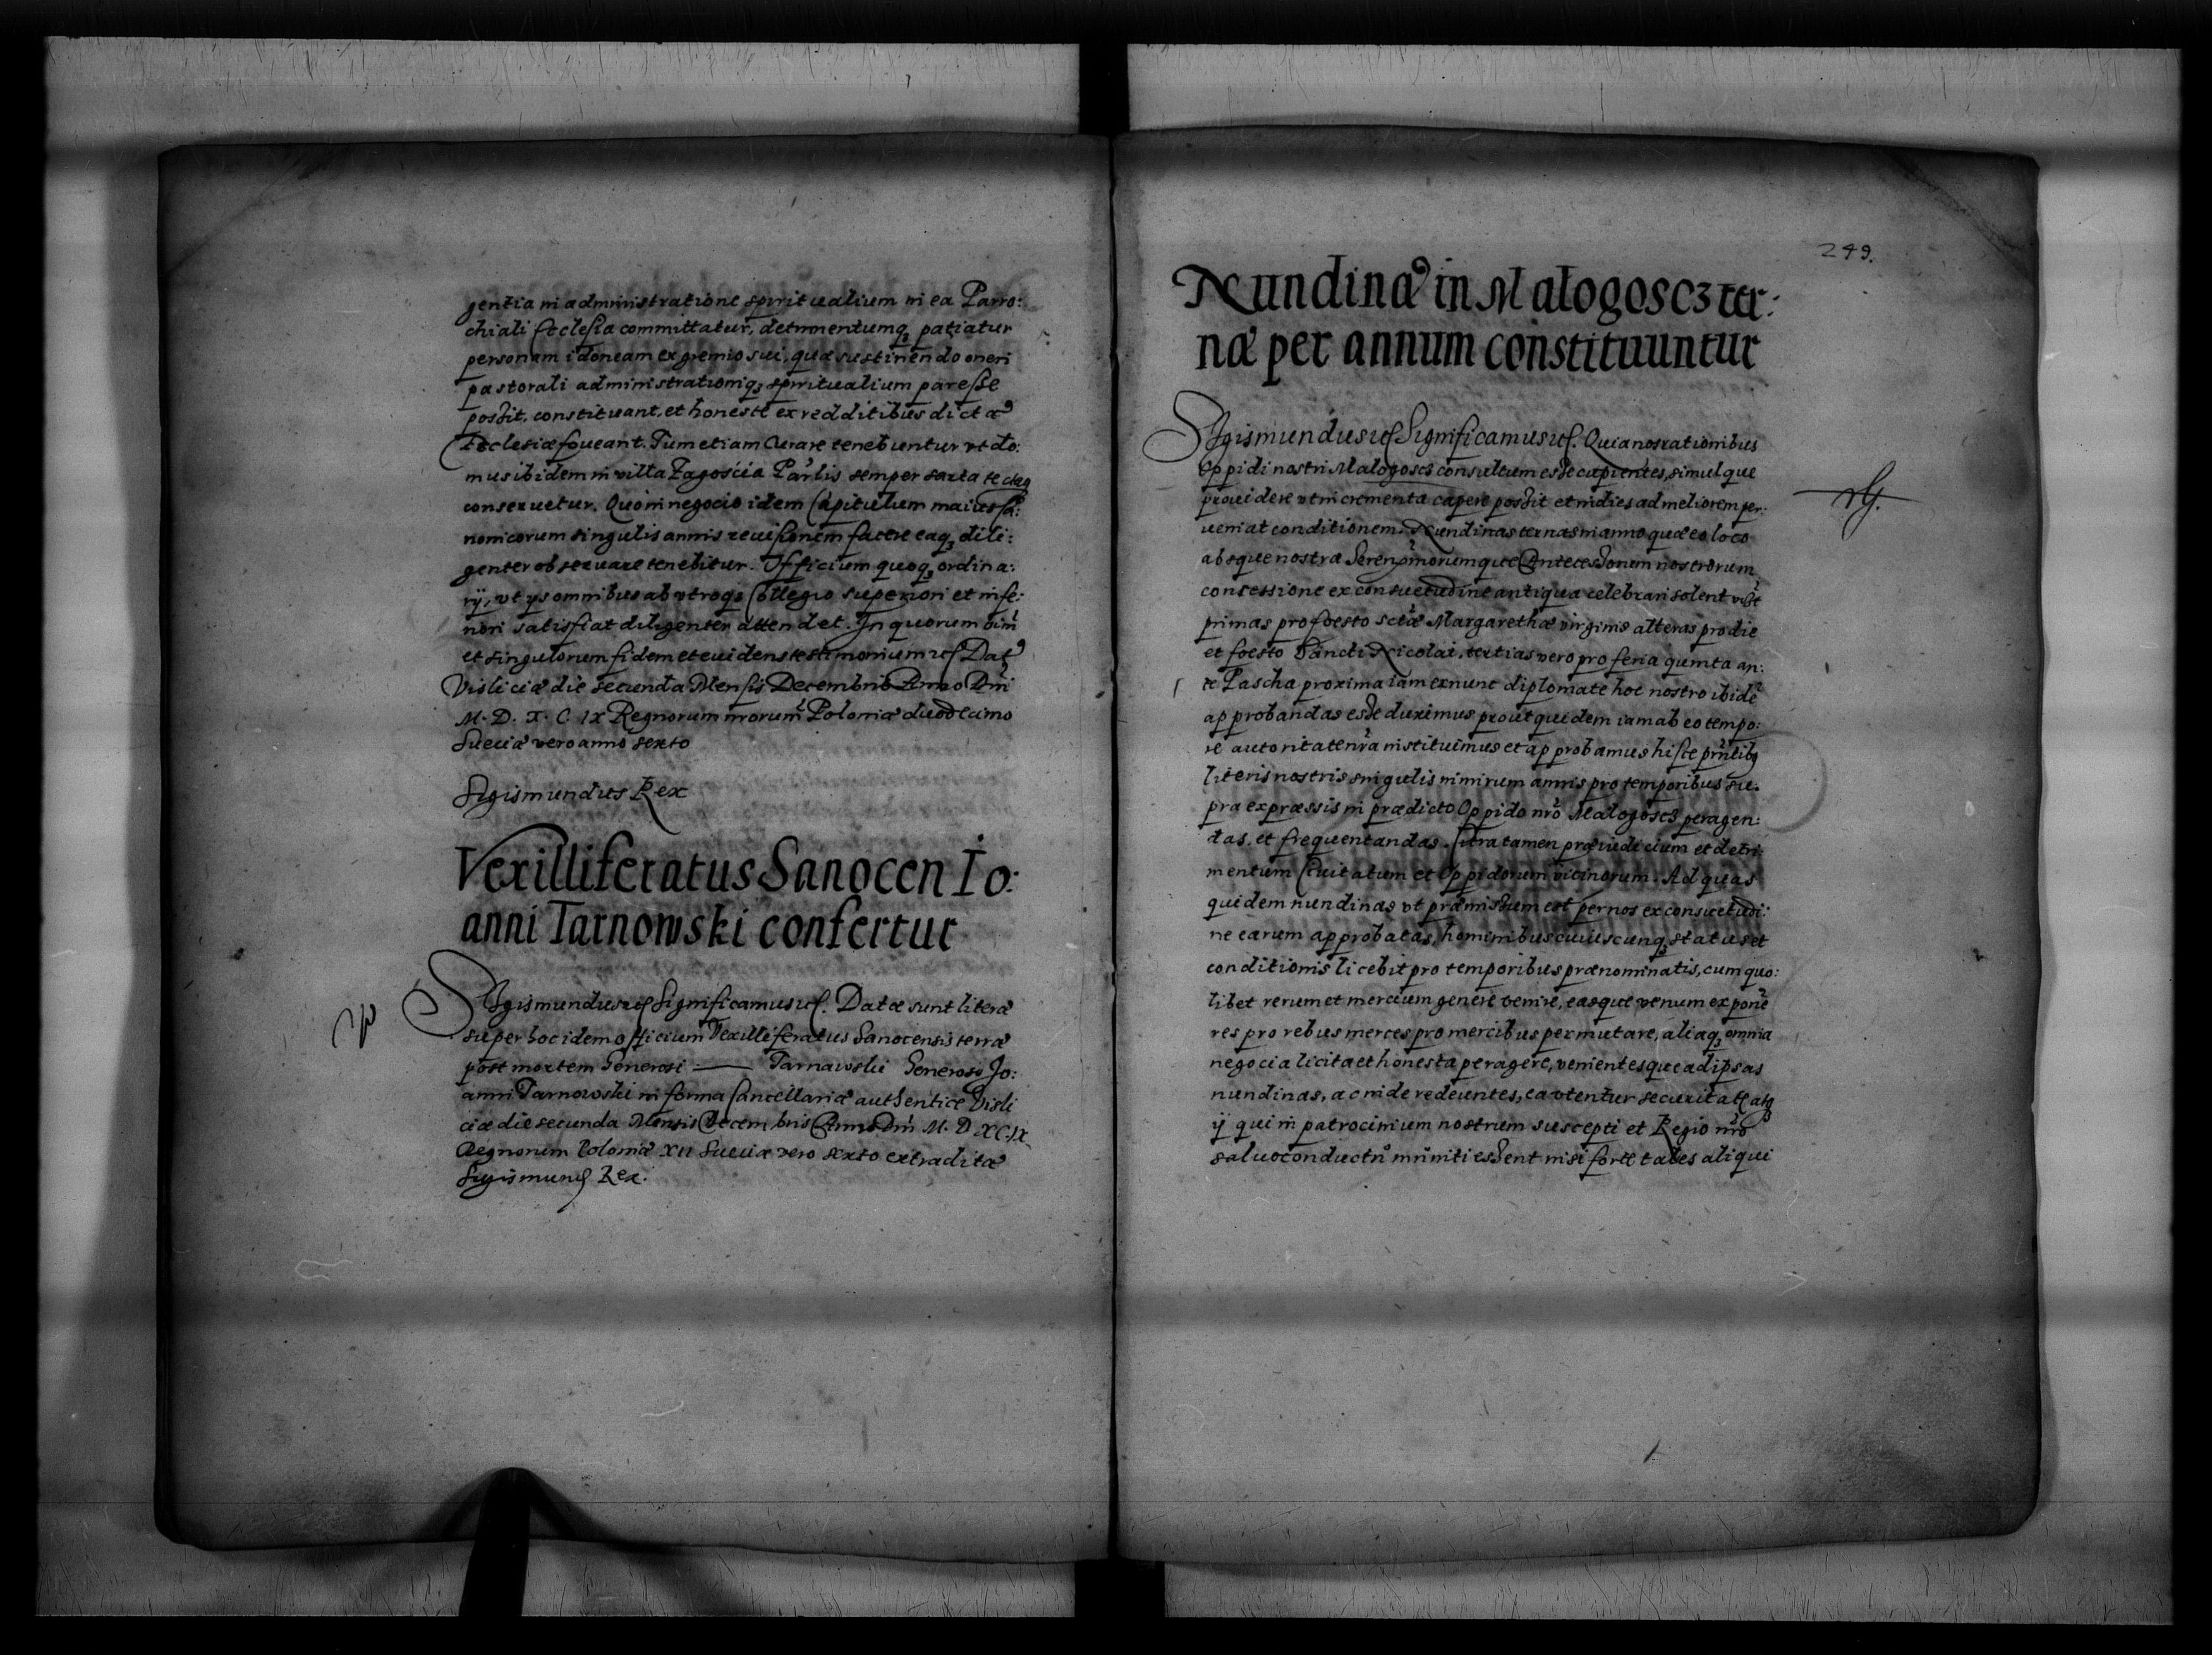 gentia in administratione spiritualium in ea Parro:
chiali Ecclesia committatur, detrimentumq3 patiatur
personam idoneam ex gremio sui, quæ sustinendo oneri
pastorali administrationiq3 spiritualium par esse
possit, constituant, et honeste ex redditibus dictæ
Ecclesiæ foueant. Tum etiam curare tenebuntur vt do:
mus ibidem in villa Zagoscia semper sarta tecta
conseruetur. Quo in negocio idem Capitulum maius Ca:
nonicorum singulis annis reuisionem facere eaq3 dili:
genter obseruare tenebitur. Officium quoq3 ordina:
rij, vt ijs omnibus ab vtroq3 Collegio superiori et infe:
riori satisfiat diligenter attendet. In quorum oim
et singulorum fidem et euidens testimonium Dat
Visliciæ die secunda Mensis Decembris Anno Dni
M. D. X. C. IX Regnorum nrorum Poloniæ duodecimo
Sueciæ vero anno sexto
Sigismundus Rex
Vexilliferatus Sanocen Io:
anni Tarnowski confertur
Sigismundus Significamus. Datæ sunt literæ
super hoc idem officium Vexilliferatus Sanocensis terræ
post mortem Generosi —— Tarnawski Generoso Jo:
anni Tarnowski in forma Cancellariæ authentice Visli
ciæ die secunda Mensis Decembris Anno Dni M. D XC.IX
Regnorum Poloniæ XII Sueciæ vero sexto extraditæ
Sigismund Rex.
249.
Nundinæ in Małogoscz ter:
næ per annum constituuntur
Sigismundus Significamus. Quia nos rationibus
Oppidi nostri Malogoscz consultum esse cupientes, simulque
prouidere vt incrementa capere possit et indies ad meliorem per:
ueniat conditionem. Nundinas ternas in anno quæ eo loco
absque nostra Serenmorumque Antecessorum nostrorum
concessione ex consuetudine antiqua celebrari solent
primas pro foesto sctæ Margarethæ virginis alteras pro die
et foesto Sancti Nicolai, tertias vero pro feria quinta an:
te Pascha proxima iam ex nunc diplomate hoc nostro ibide
approbandas esse duximus prout quidem iam ab eo tempo:
re autoritate nra instituimus et approbamus hisce
literis nostris singulis nimirum annis pro temporibus su:
pra expræssis in prædicto Oppido nro Malogoscz peragen:
das, et frequentandas. Citra tamen præiudicium et detri:
mentum Ciuitatum et Oppidorum vicinorum. Ad quas
quidem nundinas vt præmissum est per nos ex consuetudi:
ne earum approbatas, hominibus cuiuscunq3 status et
conditionis licebit pro temporibus prænominatis, cum quo:
libet rerum et mercium genere venire, easque venum expone
res pro rebus merces pro mercibus permutare, aliaq3 omnia
negocia licita et honesta peragere, venientesque ad ipsas
nundinas, ac inde redeuntes, ea vtentur securitate atq
ij qui in patrocinium nostrum suscepti et Regio nro
saluoconductu muniti essent nisi forte tales aliqui